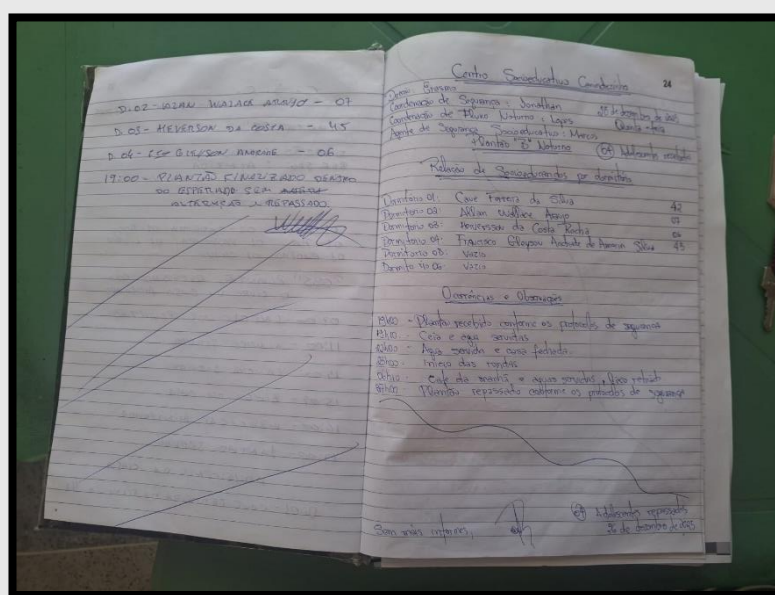 D.02- WALACE ARAUJO - 07
D.03- HEVERSON DA COSTA - 45
D.04- GLEYSON ANDRADE - 06
19:00- PLANTÃO FINALIZADO DENTRO
DO ESPERADO SEM
ALTERAÇÃO REPASSADO.
24
Centro Socioeducativo
Coordenação de Segurança: Jonathan
Coordenação de Plano Noturno: Lopes
Agente de Segurança Socioeducativo: Marcos
Plantão "B" Noturno
de dezembro de
04 Adolescentes recebidos
Relação de Socioeducandos por dormitório
Dormitorio 01: Ferreira da Silva 42
Dormitorio 02: Wallace Araujo 07
Dormitorio 03: da Costa Rocha 06
Dormitorio 04: Francisco Gleyson Andrade de Silva 45
Dormitorio 05: Vazio
Vazio
Ocorrências e Observações
19h00 - Plantão recebido conforme os protocolos de segurança
Ceia e água servidas
Água servida e casa fechada.
Início das rondas
Café da manhã e águas servidas, lixo retirado
Plantão repassado conforme os protocolos de segurança
Sem mais informes,
04 Adolescentes repassados
de dezembro de